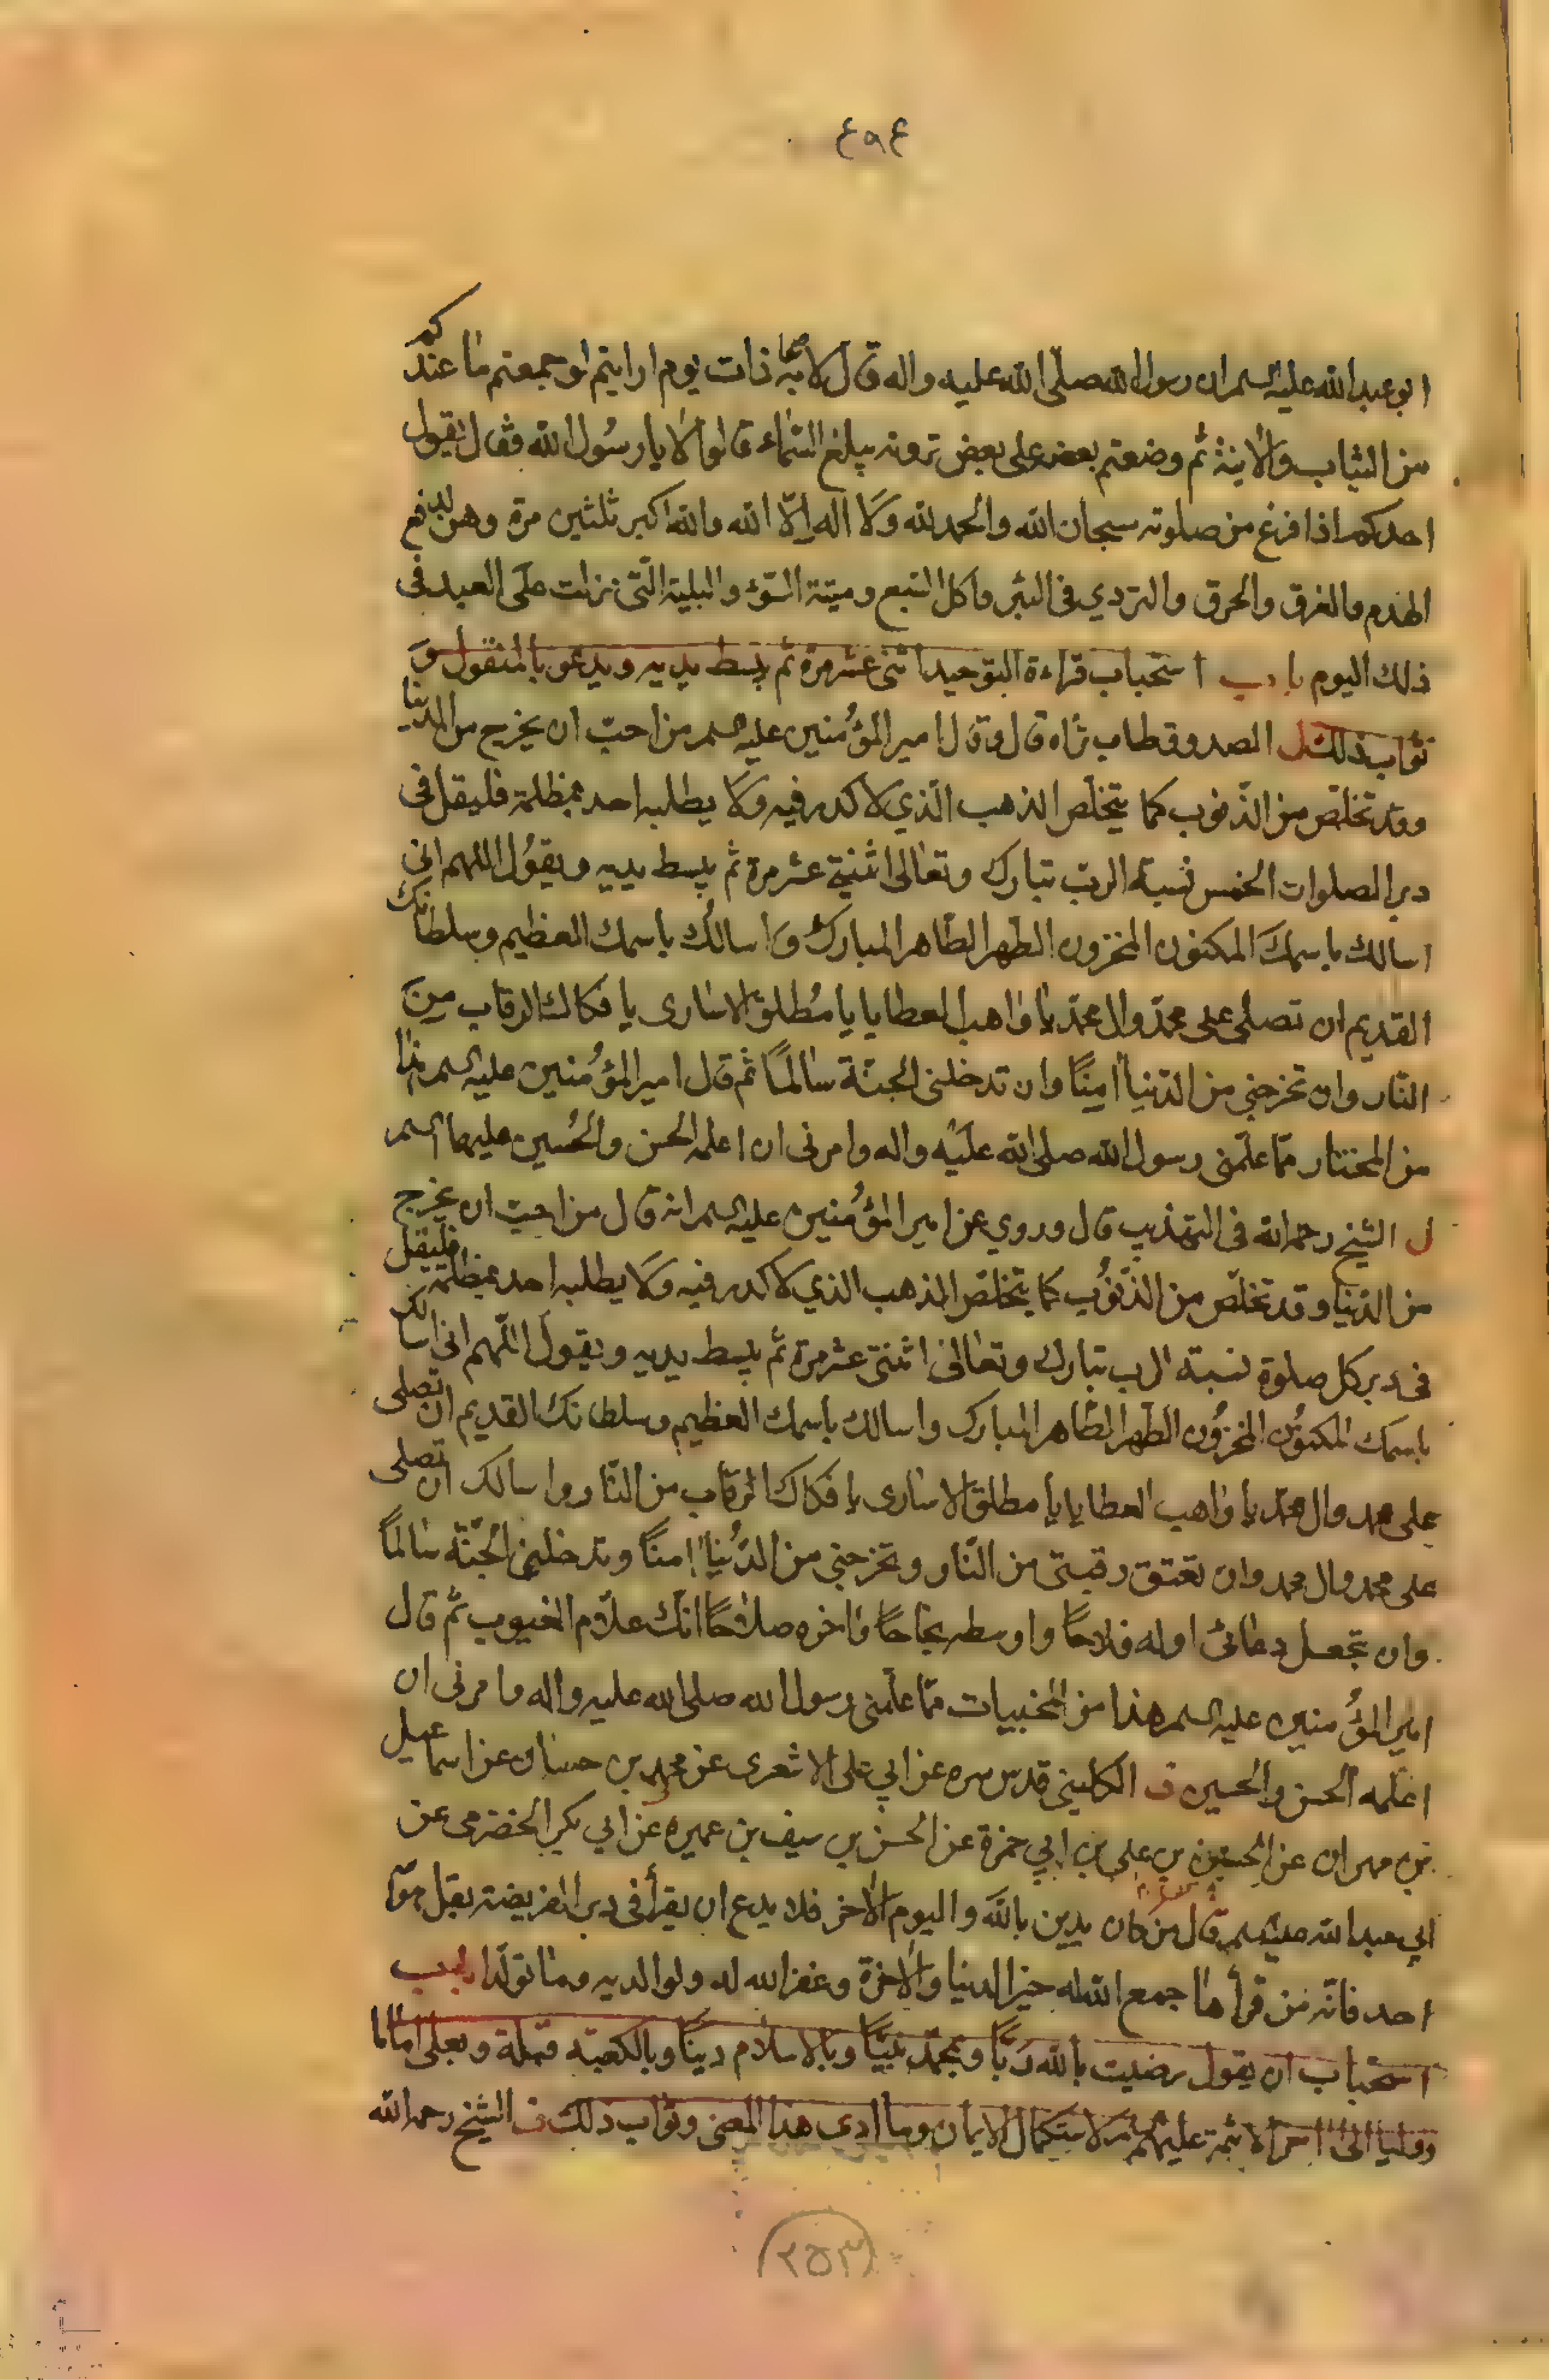 ٤٩٤
ابو عبد الله عليه السلم ان رسول الله صلّى الله عليه واله قال لاصحابه ذات يوم ارايتم لو جمعتم ما عندكم
من الثياب والانية ثم وضعتم بعضه على بعض ترونه يبلغ السّماء قالوا لا يا رسُول الله فقال يقول
احدكم اذا فرغ من صلوته سبحان الله والحمد لله ولا اله الّا الله والله اكبر ثلثين مرة وهن يدفع
الهدم والغرق والحرق والتردي فى البئر واكل السّبع وميتة السّوء والبلية الّتى نزلت على العبد فى
ذلك اليوم باب استحباب قراءة التوحيد اثنى عشر مرة ثم يبسط يديه ويدعو بالمنقول و
ثواب ذلك ل الصدوق طاب ثراه قال وقال امير المؤمنين عليه السلم من احبّ ان يخرج من الدنيا
وقد تخلّص من الذّنوب كما يتخلّص الذهب الّذي لا كدر فيه ولا يطلبه احد بمظلمة فليقل فى
دبر الصلوات الخمس نسبة الربّ تبارك وتعالى اثنتى عشر مرة ثم يبسط يديه ويقول اللهم انى
اسالك باسمك المكنون المخزون الطّهر الطّاهر المبارك واسالك باسمك العظيم وسلطانك
القديم ان تصلى على محمّد وال محمّد يا واهب العطايا يا مُطلق الاسارى يا فكاك الرقاب من
النّار وان تخرجنى من الدّنيا امِنًا وان تدخلنى الجنّة سالمًا ثم قال امير المؤمنين عليه السلم هذا
من المختار ممّا علّمنى رسول الله صلى الله عليه واله وامرنى ان اعلمه الحسن والحُسين عليهما السلم
ل الشيخ رحمه الله فى التهذيب قال وروي عن امير المؤمنين عليه السلم انه قال من احبّ ان يخرج
من الدّنيا وقد تخلّص من الذّنوُب كما يتخلّص الذهب الذي لا كدر فيه ولا يطلبه احد بمظلمة فليقل
فى دبر كل صلوة نسبة الرب تبارك وتعالى اثنتى عشر مرة ثم يبسط يديه ويقول اللّهم انى اسالك
باسمك المكنوُن المخزوُن الطّهر الطّاهر المبارك واسالك باسمك العظيم وسلطانك القديم ان تصلى
على محمد وال محمّد يا واهب العطايا يا مطلق الاسارى يا فكاك الرقاب من النّار واسالك ان تصلى
على محمد وال محمد وان تعتق رقبتى من النّار وتخرجنى من الدُّنيا امنًا وتدخلنى الجنّة سالمًا
وان تجعل دعائى اوله فلاحًا واوسطه نجاحًا واخره صلاحًا انّك علّام الغيوب ثم قال
امير المؤمنين عليه السلم هذا من المخبيات ممّا علّمنى رسول الله صلى الله عليه واله وامرنى ان
اعلّمه الحسن والحسين ف الكلينى قدس سره عن ابي على الاشعرى عن محمد بن حسان عن اسماعيل
بن مهران عن الحسن بن على بن ابي حمزة عن الحسن بن سيف بن عميره عن ابي بكر الحضرمى عن
ابي عبد الله عليه السلم قال من كان يدين بالله واليوم الاخر فلا يدع ان يقرأ فى دبر الفريضة بقل هو الله
احد فانّه من قرأها جمع الله له خير الدنيا والاخرة وغفر الله له ولوالديه وما تولّدا باب
استحباب ان يقول رضيت بالله ربًّا وبمحمّد نبيّا وبالاسلام دينًا وبالكعبة قبلة وبعلى اماما
ووليا الى اخر الائمّة عليهم السلم لاستكمال الايمان وما ادى هذا المعنى وثواب ذلك ف الشيخ رحمه الله
٢٥٣